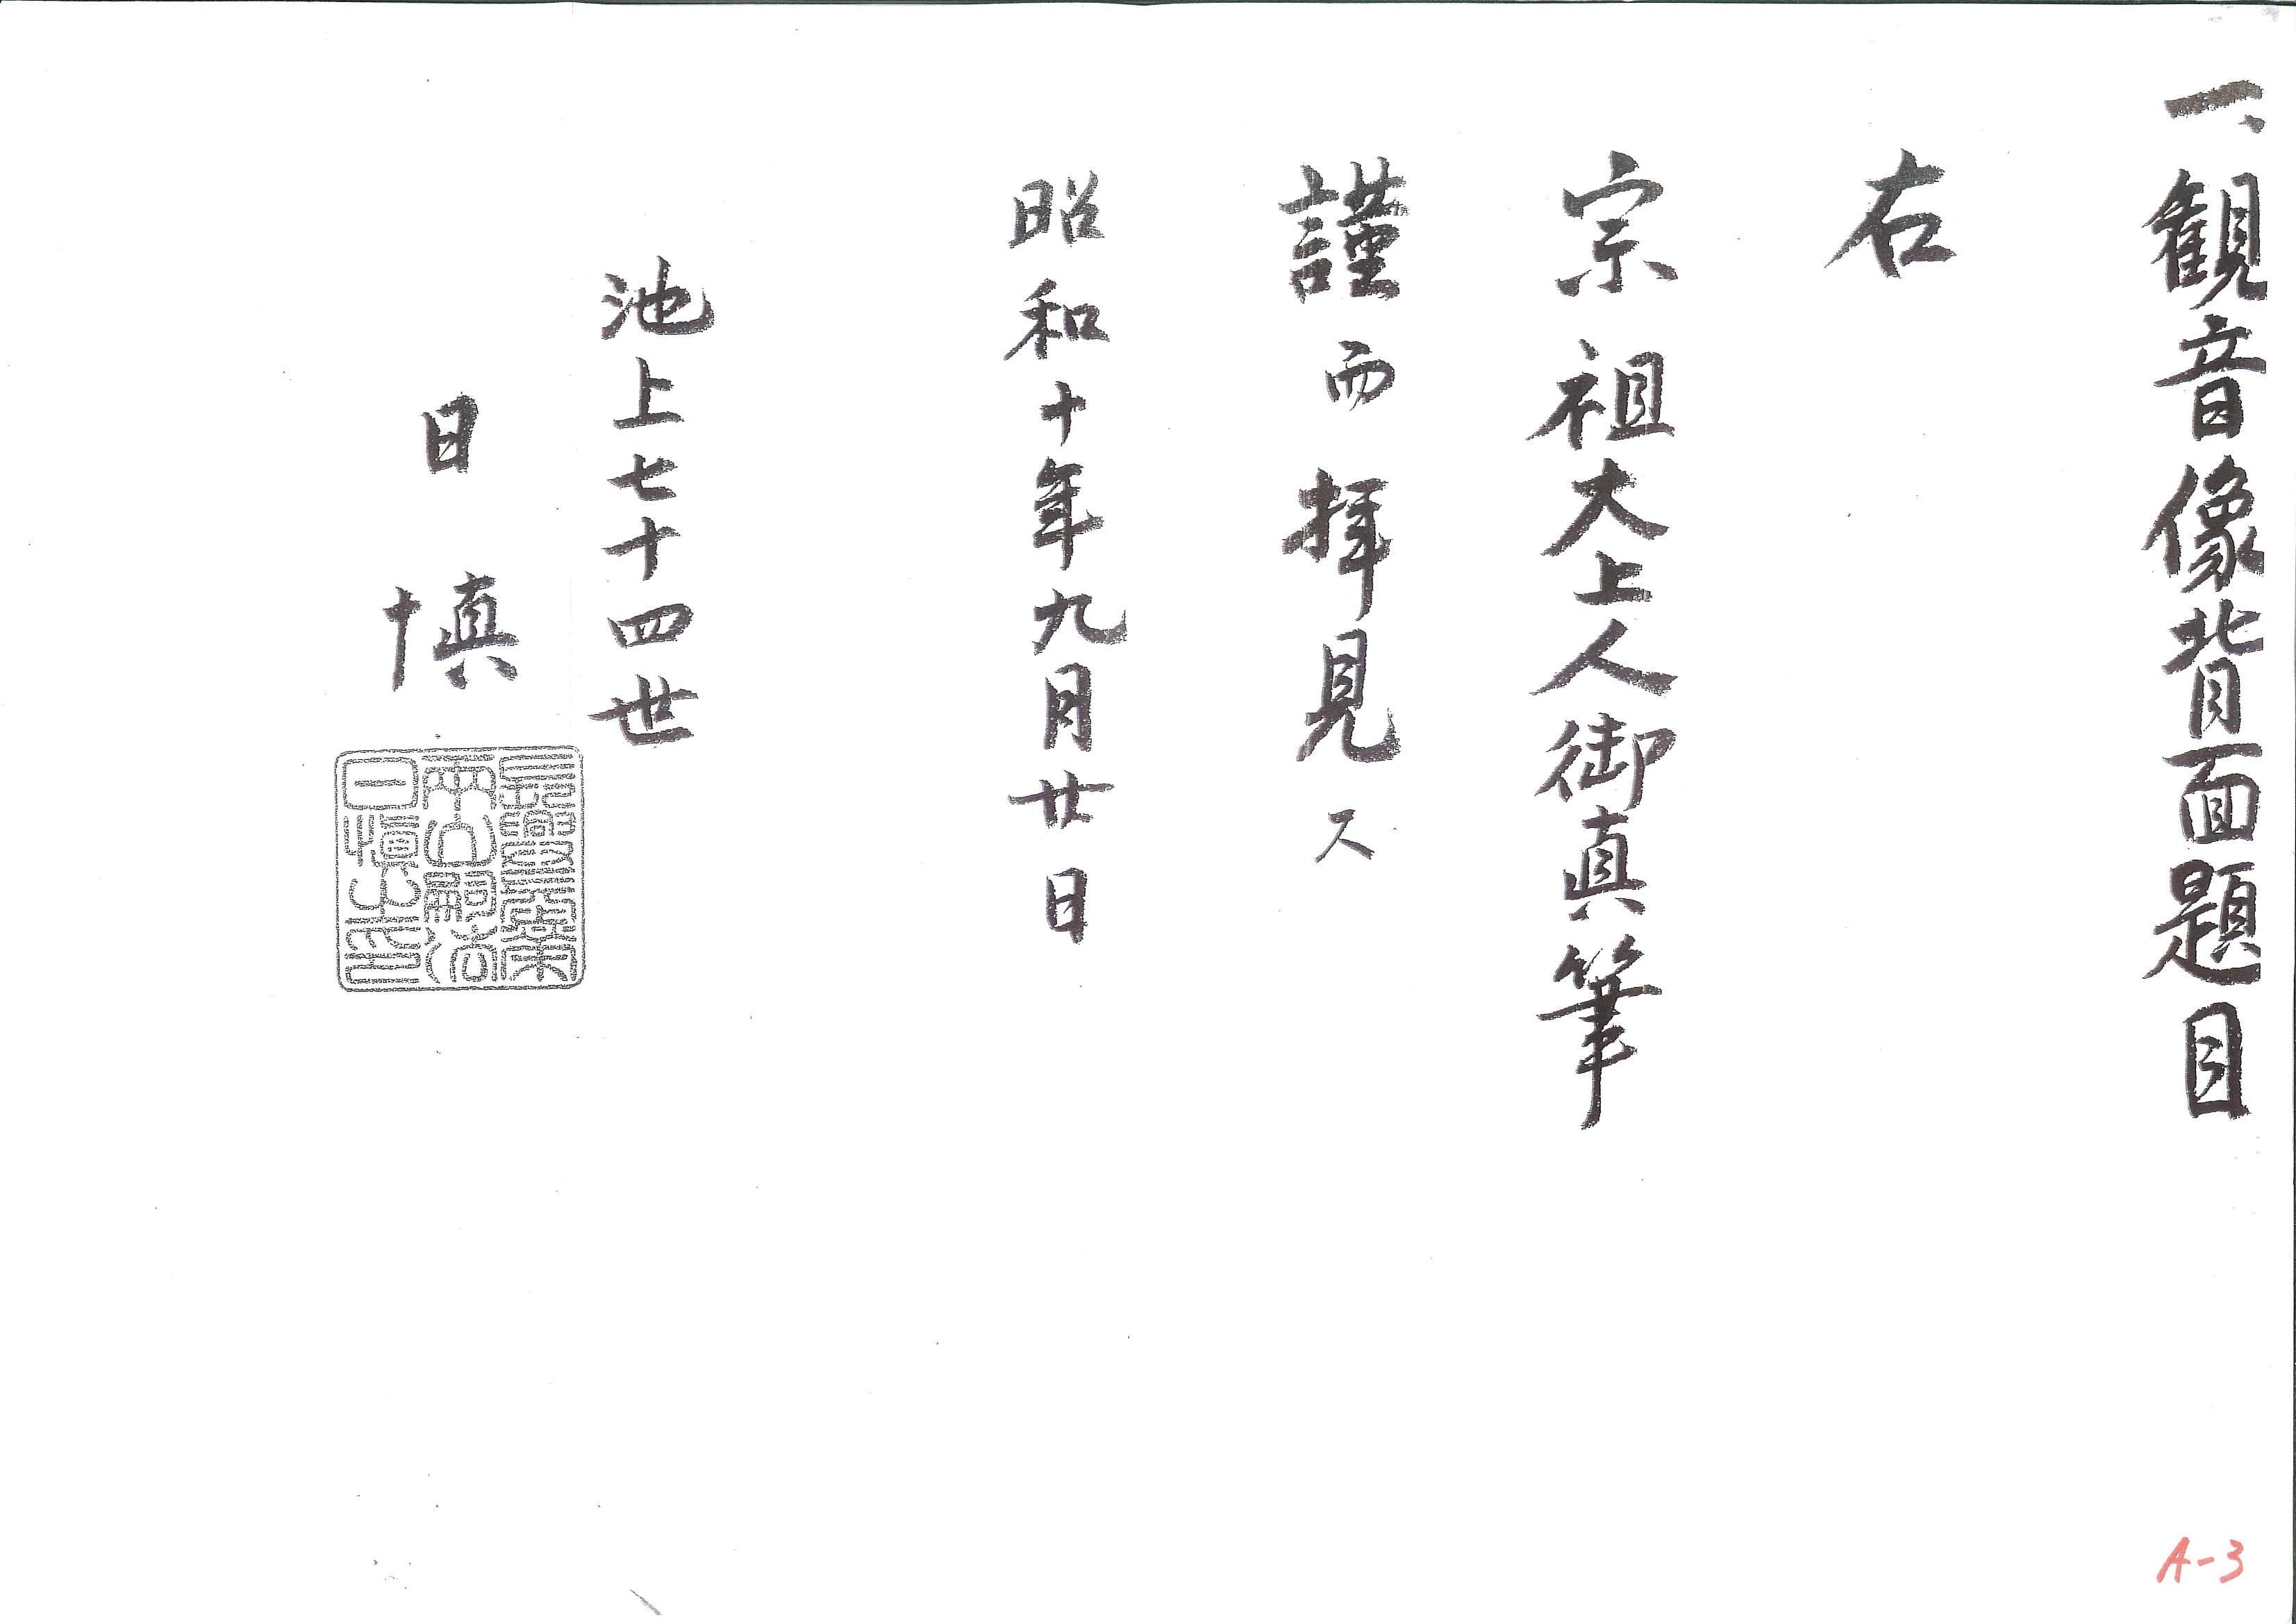 一、観音像背面題目
右
宗祖大上人御真筆
謹而拝見ス
昭和十年九月廿日
池上七十四世
日慎
日慎之印
A-3